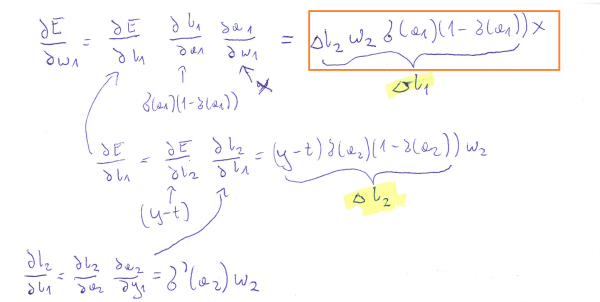 ∂E/∂w₁ = ∂E/∂l₁ ∂l₁/∂a₁ ∂a₁/∂w₁ = Δl₂ w₂ δ(a₁)(1-δ(a₁)) x
x
δ(a₁)(1-δ(a₁))
Δl₁
∂E/∂l₁ = ∂E/∂l₂ ∂l₂/∂l₁ = (y-t) δ(a₂)(1-δ(a₂)) w₂
(y-t)
Δl₂
∂l₂/∂l₁ = ∂l₂/∂a₂ ∂a₂/∂y₁ = δ'(a₂) w₂